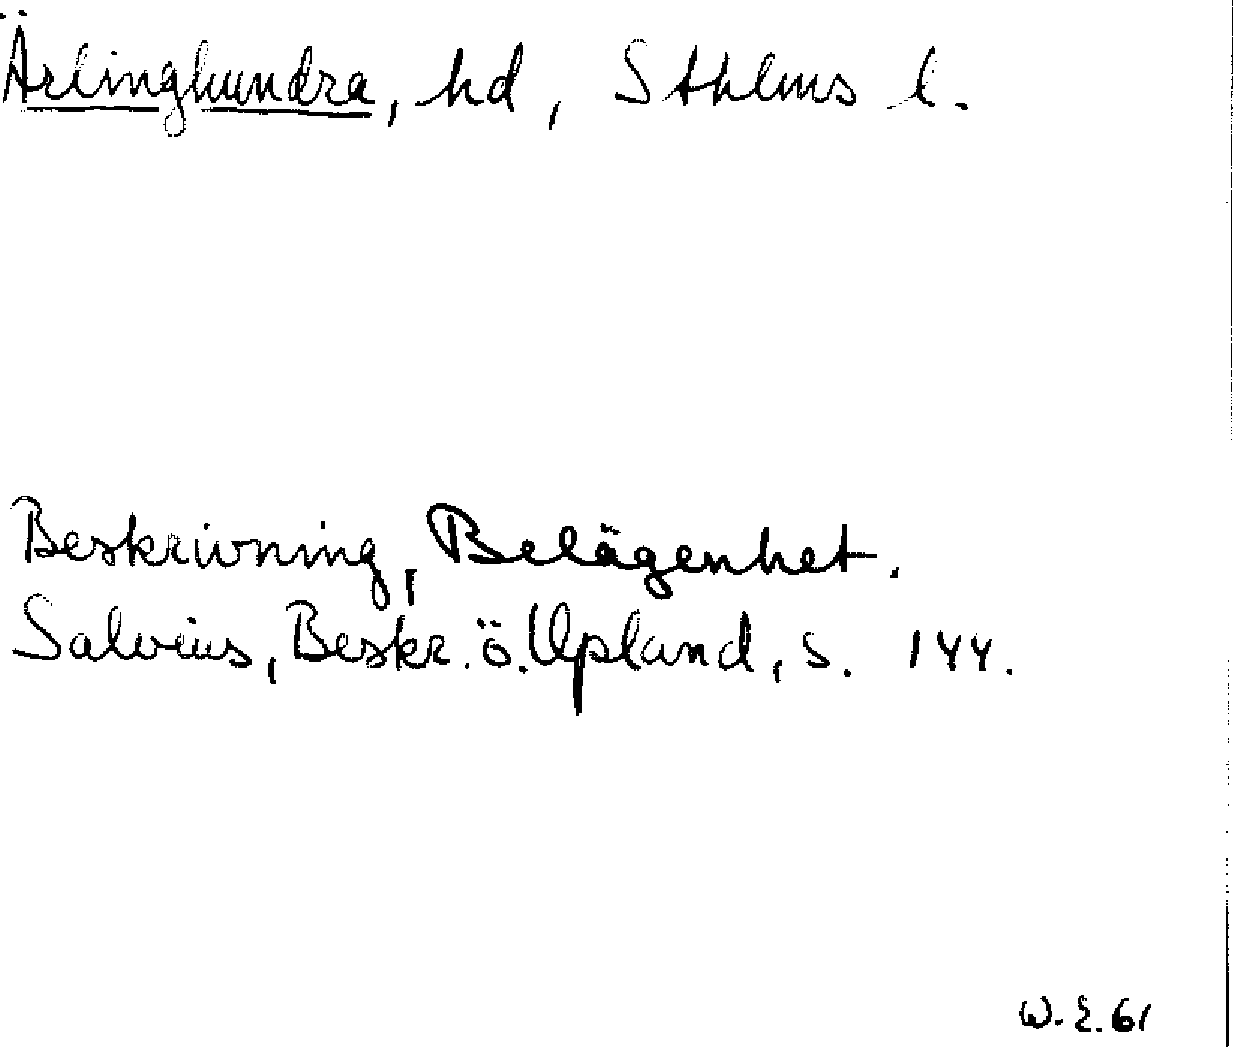 Ärlinghundra, hd, Sthlms l.
Beskrivning, Belägenhet.
Salvius, Beskr. ö. Upland, s. 144.
W. E. 61